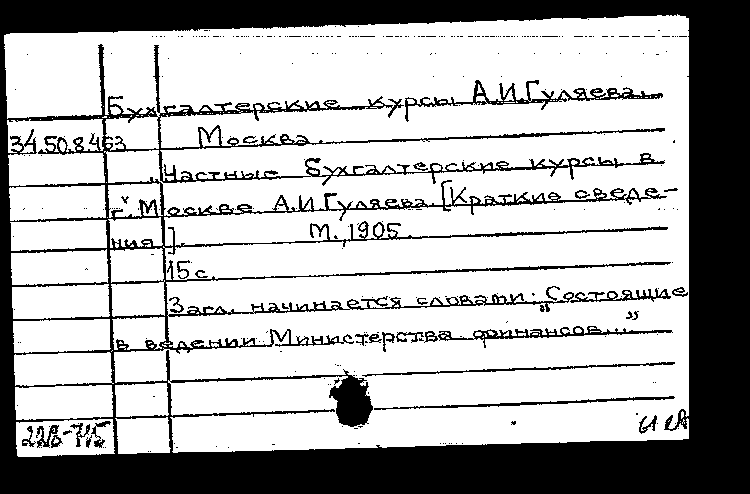 Бухгалтерские курсы А.И.Гуляева.
34.50.8.463 Москва.
„Частные Бухгалтерские курсы в
г. Москве А.И.Гуляева. [Краткие сведе-
ния]. М., 1905.
15 с.
Загл. начинается словами: „Состоящие
в ведении Министерства финансов..."